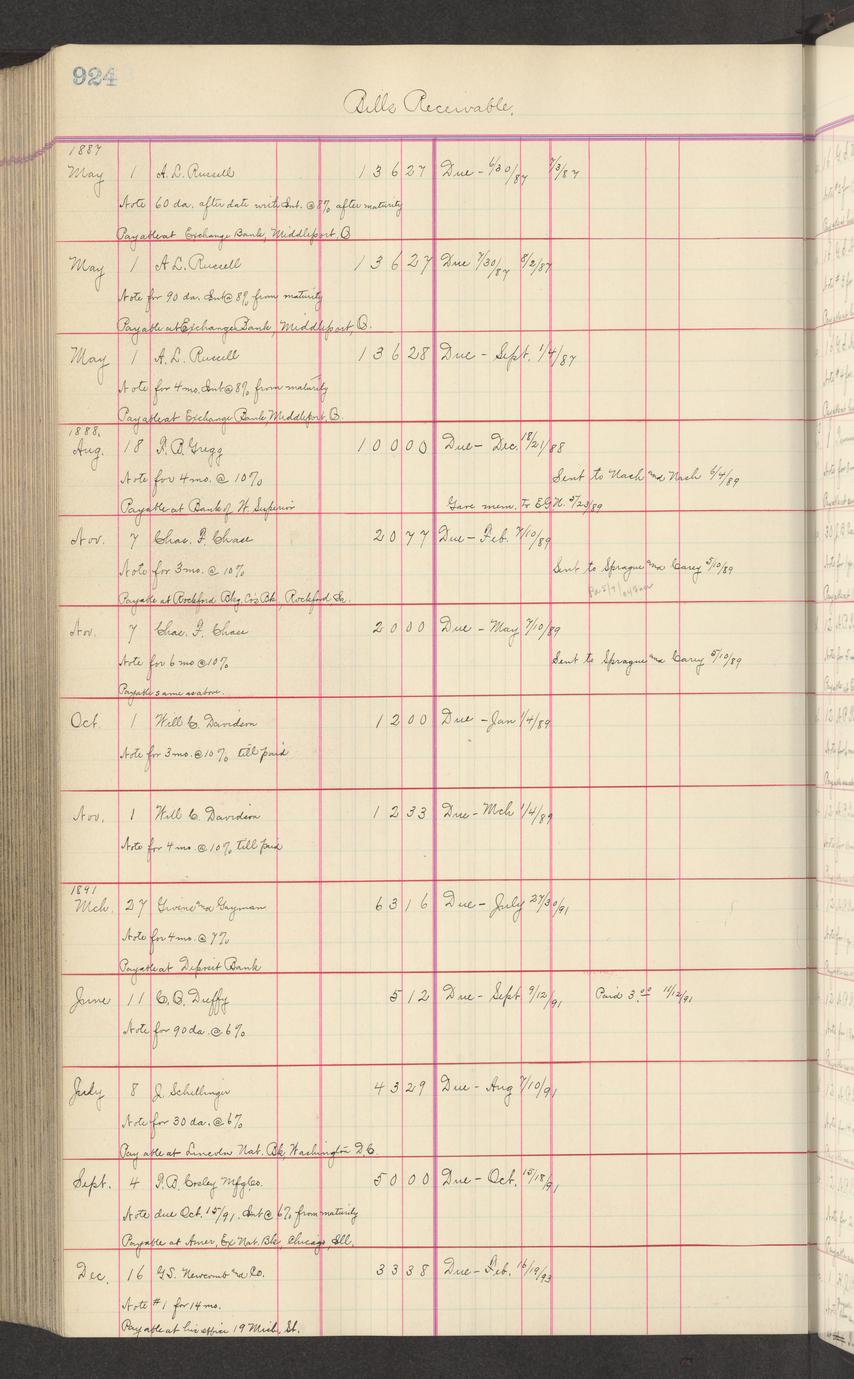 924
Bills Receivable.
1887
May 1 A. L. Russell 136 27 Due - 6/30/87 7/3/87
Note 60 da. after date with Int. @ 8% after maturity
Payable at Exchange Bank, Middleport, O
May 1 A. L. Russell 136 27 Due 7/30/87 8/2/87
Note for 90 da. Int @ 8% from maturity
Payable at Exchange Bank, Middleport, O.
May 1 A. L. Russell 136 28 Due - Sept. 1/4/87
Note for 4 mo. Int @ 8% from maturity
Payable at Exchange Bank, Middleport, O.
1888.
Aug. 18 F. B. Gregg 100 00 Due - Dec. 18/21/88
Note for 4 mo. @ 10% Sent to Nash and Nash 6/4/89
Payable at Bank of W. Superior Gave mem. To E.G.N. 5/23/89
Nov. 7 Chas. F. Chase 20 77 Due - Feb. 7/10/89
Note for 3 mo. @ 10% Sent to Sprague and Carey 5/10/89
Payable at Rockford Bkg. Co's Bk, Rockford Ia.
Nov. 7 Chas. F. Chase 20 00 Due - May 7/10/89
Note for 6 mo @ 10% Sent to Sprague and Carey 5/10/89
Payable same as above.
Oct. 1 Will C. Davidson 12 00 Due - Jan 1/4/89
Note for 3 mo. @ 10% till paid
Nov. 1 Will C. Davidson 12 33 Due - Mch 1/4/89
Note for 4 mo. @ 10% till paid
1891
Mch. 27 and Guyman 63 16 Due - July 27/30/91
Note for 4 mo. @ 7%
Payable at Deposit Bank
June 11 C. O. Duffy 5 12 Due - Sept 9/12/91 Paid 3.00 11/12/91
Note for 90 da. @ 6%
July 8 J. Schillinger 43 29 Due - Aug 7/10/91
Note for 30 da. @ 6%
Payable at Lincoln Nat. Bk, Washington D.C.
Sept. 4 Mfg. Co. 50 00 Due - Oct. 15/18/91
Note due Oct. 15/91. Int @ 6% from maturity
Payable at Amer. Ex Nat. Bk, Chicago, Ill.
Dec. 16 G.S. Newcomb and Co. 33 38 Due - Feb. 16/19/93
Note #1 for 14 mo.
Payable at his office 19 Mich. St.